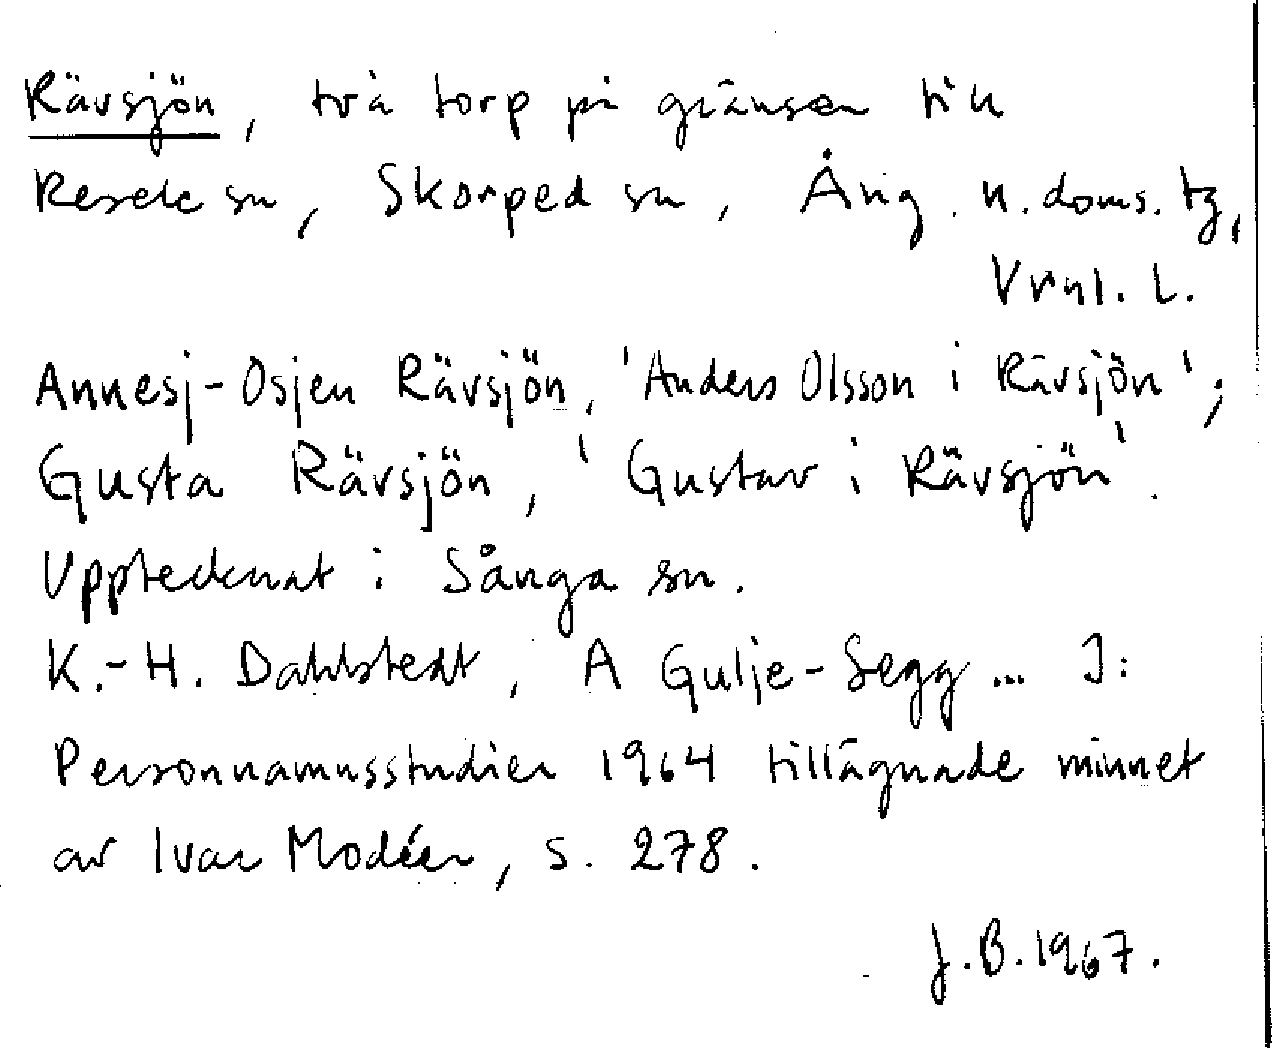 Rävsjön, två torp på gränsen till
Resele sn, Skorped sn, Ång. n. doms. tg,
Vrnl. L.
Annesj-Osjen Rävsjön, 'Anders Olsson i Rävsjön';
Gusta Rävsjön, 'Gustav i Rävsjön'.
Upptecknat i Sånga sn.
K.-H. Dahlstedt, A Gulje-Segg... I:
Personnamnsstudier 1964 tillägnade minnet
av Ivar Modéer, s. 278.
J.B. 1967.